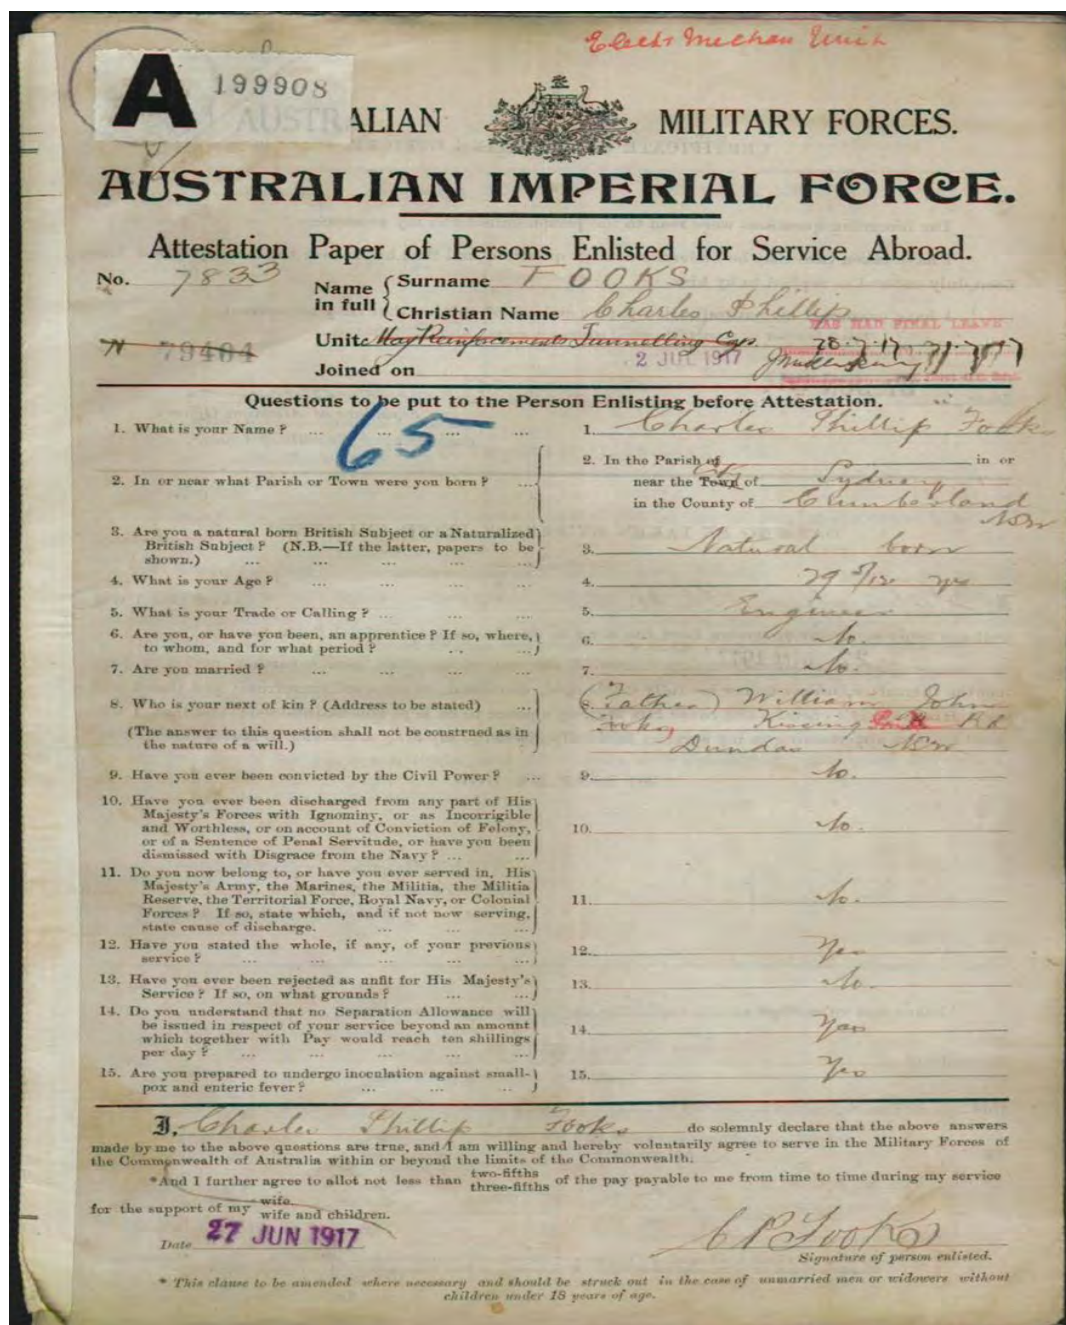 Electr Mechan Unit
A 199908
AUSTRALIAN MILITARY FORCES.
AUSTRALIAN IMPERIAL FORCE.
Attestation Paper of Persons Enlisted for Service Abroad.
No. 7833
Name in full { Surname FOOKS
Christian Name Charles Phillip
HAS HAD FINAL LEAVE
N 79404
Unit May Reinforcements Tunnelling Cps.
Joined on 2 JUL 1917
Questions to be put to the Person Enlisting before Attestation.
65
1. What is your Name ? ... ... ... ... 1. Charles Phillip Fooks
2. In or near what Parish or Town were you born ? ... 2. In the Parish of in or
near the Town of City Sydney
in the County of Cumberland
NSW
3. Are you a natural born British Subject or a Naturalized
British Subject ? (N.B.—If the latter, papers to be
shown.) ... ... ... ... ... 3. Natural born
4. What is your Age ? ... ... ... ... 4. 29 5/12 yrs
5. What is your Trade or Calling ? ... ... ... 5. Engineer
6. Are you, or have you been, an apprentice ? If so, where,
to whom, and for what period ? ... ... 6. No.
7. Are you married ? ... ... ... ... 7. No.
8. Who is your next of kin ? (Address to be stated) ... 8. (Father) William John
Fooks, Kissing Point Rd
(The answer to this question shall not be construed as in
the nature of a will.) Dundas NSW
9. Have you ever been convicted by the Civil Power ? ... 9. No.
10. Have you ever been discharged from any part of His
Majesty's Forces with Ignominy, or as Incorrigible
and Worthless, or on account of Conviction of Felony,
or of a Sentence of Penal Servitude, or have you been
dismissed with Disgrace from the Navy ? ... ... 10. No.
11. Do you now belong to, or have you ever served in, His
Majesty's Army, the Marines, the Militia, the Militia
Reserve, the Territorial Force, Royal Navy, or Colonial
Forces ? If so, state which, and if not now serving,
state cause of discharge. ... ... ... 11. No.
12. Have you stated the whole, if any, of your previous
service ? ... ... ... ... ... 12. Yes
13. Have you ever been rejected as unfit for His Majesty's
Service ? If so, on what grounds ? ... ... 13. No.
14. Do you understand that no Separation Allowance will
be issued in respect of your service beyond an amount
which together with Pay would reach ten shillings
per day ? ... ... ... ... ... 14. Yes
15. Are you prepared to undergo inoculation against small-
pox and enteric fever ? ... ... ... 15. Yes
I, Charles Phillip Fooks do solemnly declare that the above answers
made by me to the above questions are true, and I am willing and hereby voluntarily agree to serve in the Military Forces of
the Commonwealth of Australia within or beyond the limits of the Commonwealth.
*And I further agree to allot not less than two-fifths three-fifths of the pay payable to me from time to time during my service
for the support of my wife. wife and children.
Date 27 JUN 1917
C P Fooks
Signature of person enlisted.
* This clause to be amended where necessary and should be struck out in the case of unmarried men or widowers without
children under 18 years of age.